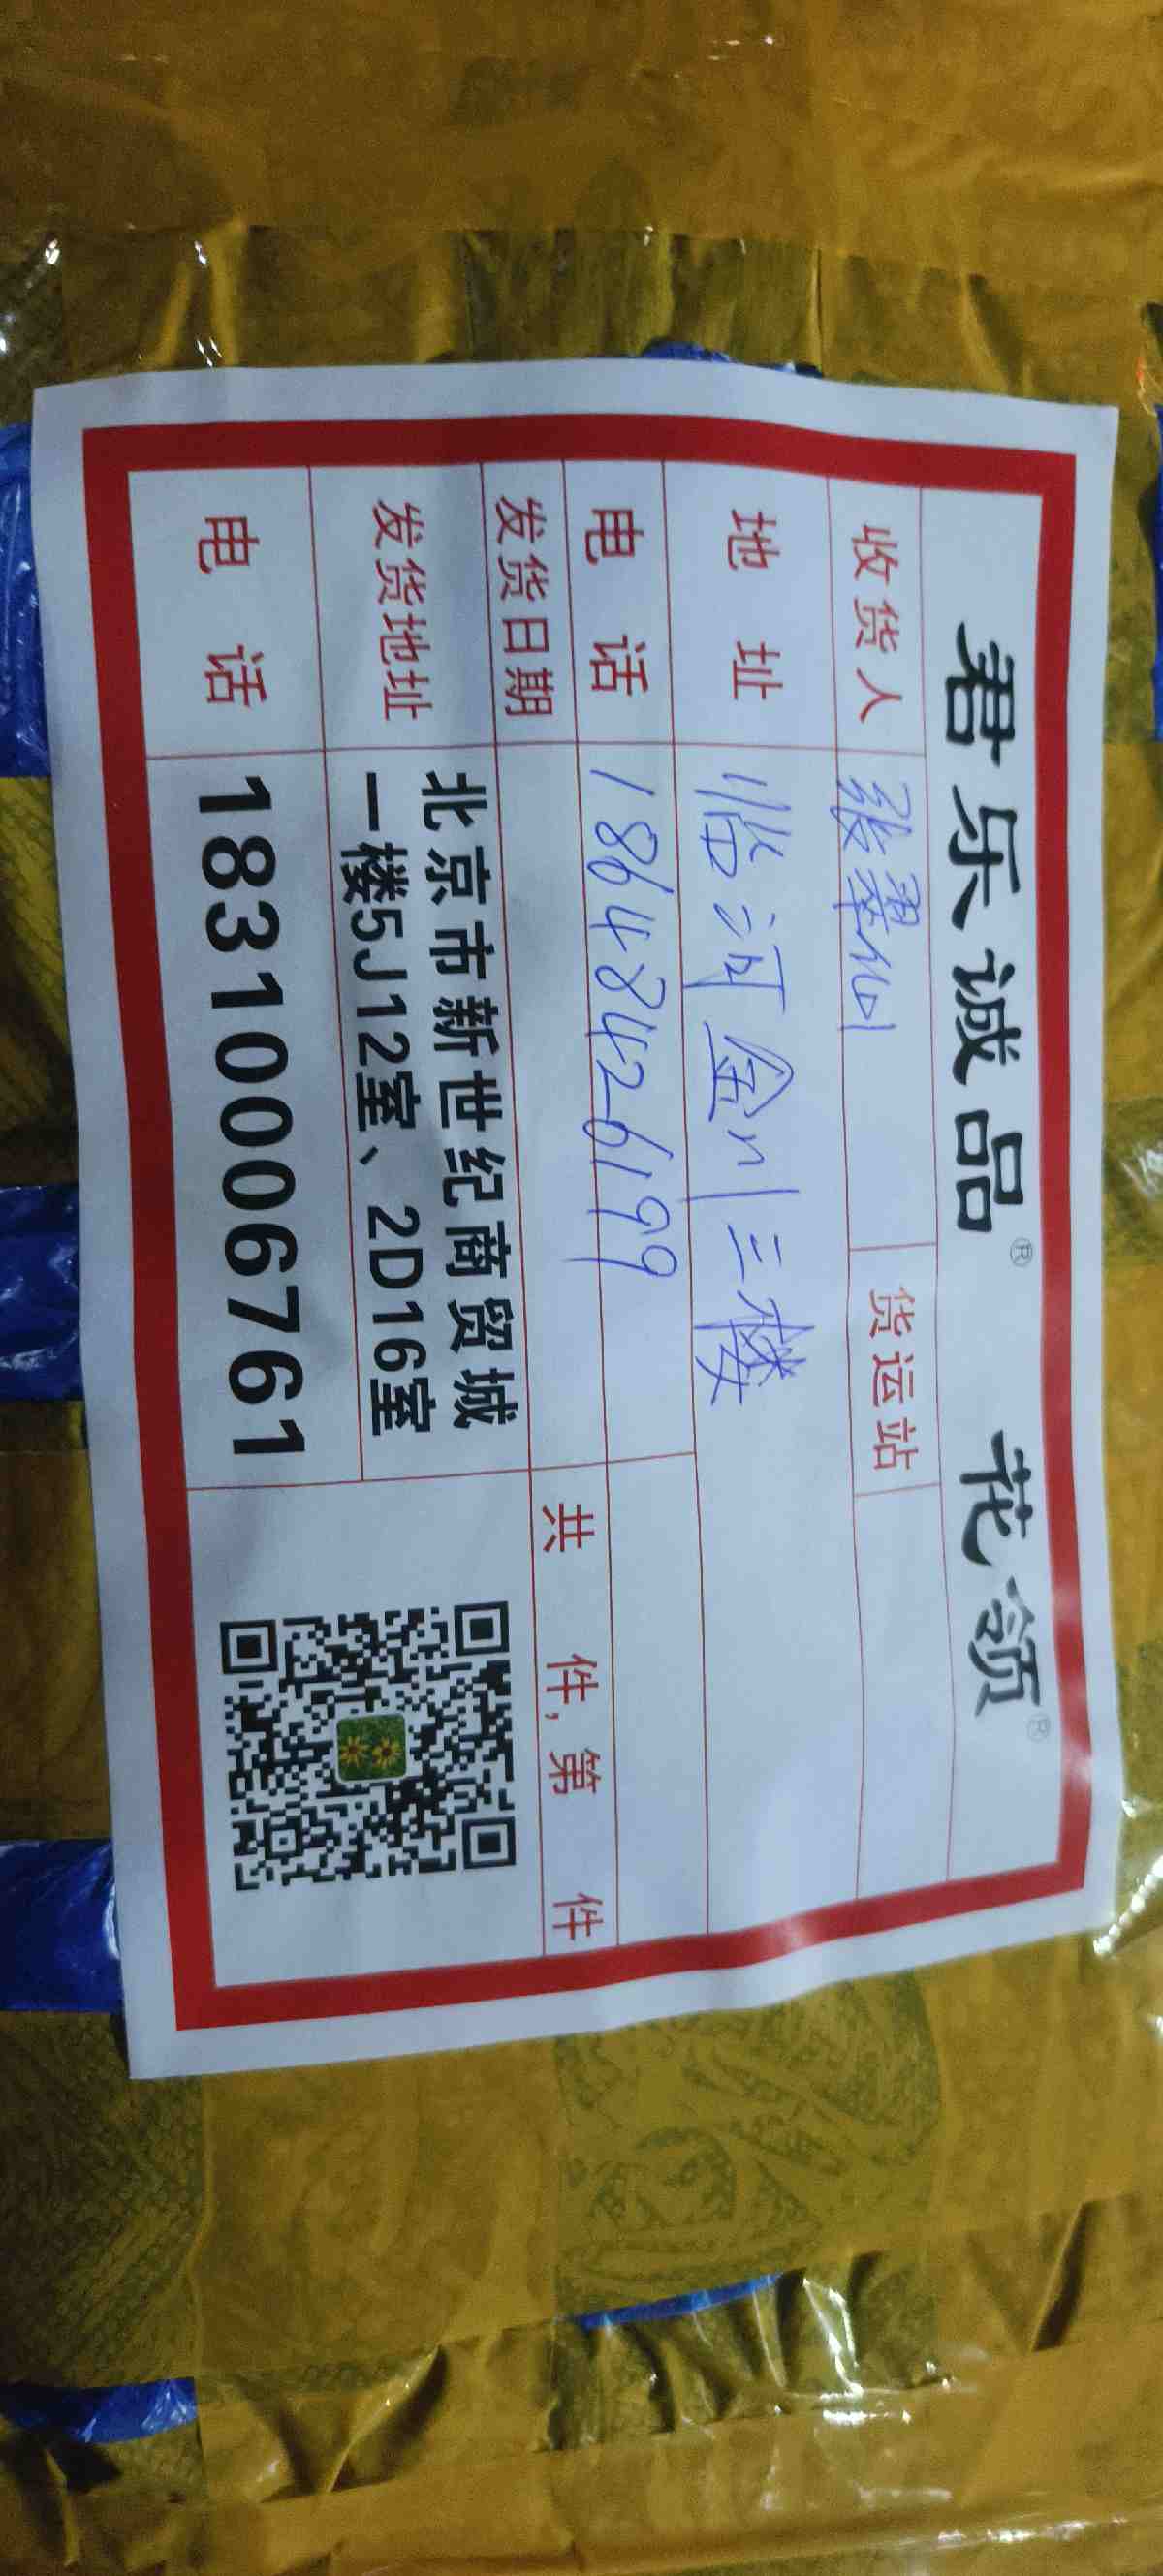 君乐诚品® 花领®
收货人 张翠仙 货运站
地址 临河金川三楼
电话 18648426199
发货日期 共 件，第 件
发货地址 北京市新世纪商贸城
一楼5J12室、2D16室
电话 18310006761